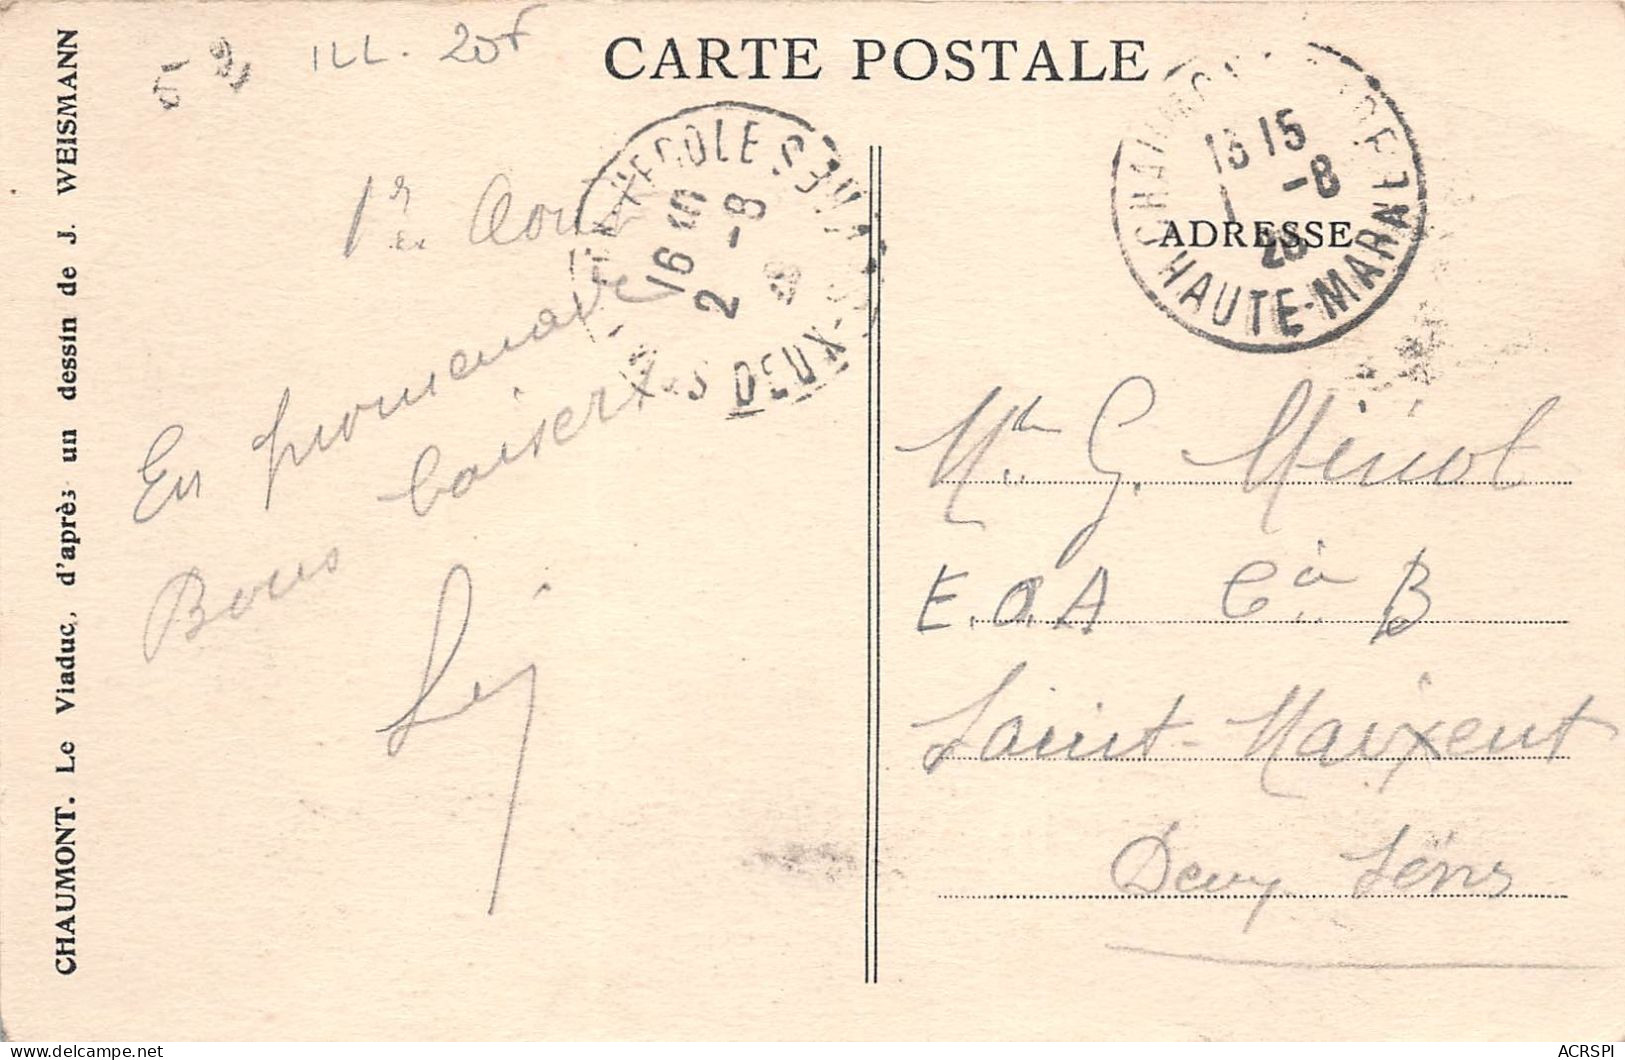 ILL. 20F
CARTE POSTALE
CHAUMONT. Le Viaduc, d'après un dessin de J. WEISMANN
1er Aout
En promenade
Bons baisers
16
2 -8
DEUX-
13 15
1 -8
HAUTE-MARNE
ADRESSE
G. Menot
E.O.A Cie B
Saint-Maixent
Deux Sèvres
ACRSPI